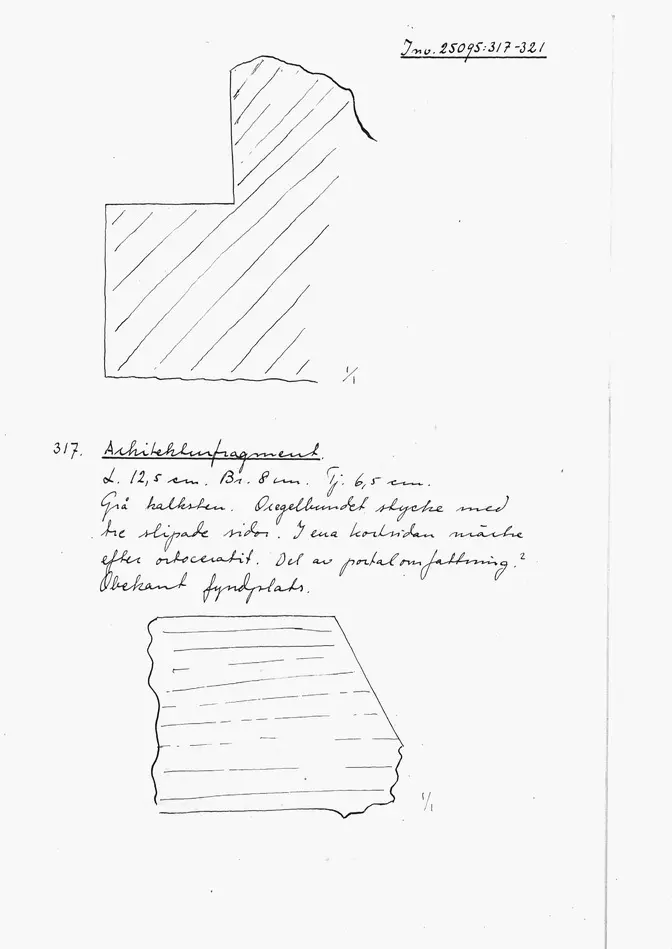 Inv. 25095:317-321
1/1
317. Arkitekturfragment.
L. 12,5 cm. Br. 8 cm. Tj. 6,5 cm.
Grå kalksten. Oregelbundet stycke med
tre slipade sidor. I ena kortsidan märke
efter ortoceratit. Del av portalomfattning?
Obekant fyndplats.
1/1